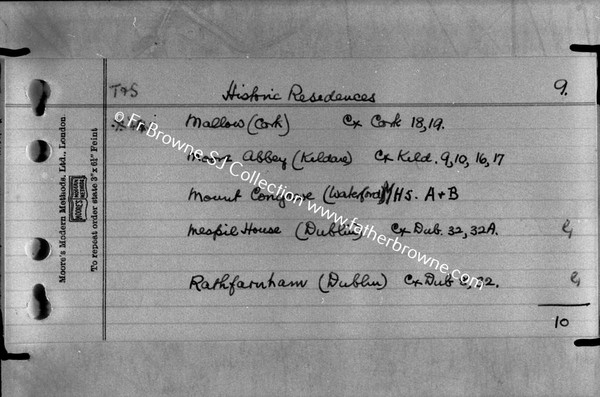 T&S Historic Residences 9.
Mallow (Cork) Cx Cork 18, 19.
Moore Abbey (Kildare) Cx Kild. 9, 10, 16, 17
Mount Congreve (Waterford) Hs. A + B
Mespil House (Dublin) Cx Dub. 32, 32A.
Rathfarnham (Dublin) Cx Dub 32.
10
Moore's Modern Methods, Ltd., London
To repeat order state 3" x 6½" Feint
© Fr Browne SJ Collection www.fatherbrowne.com